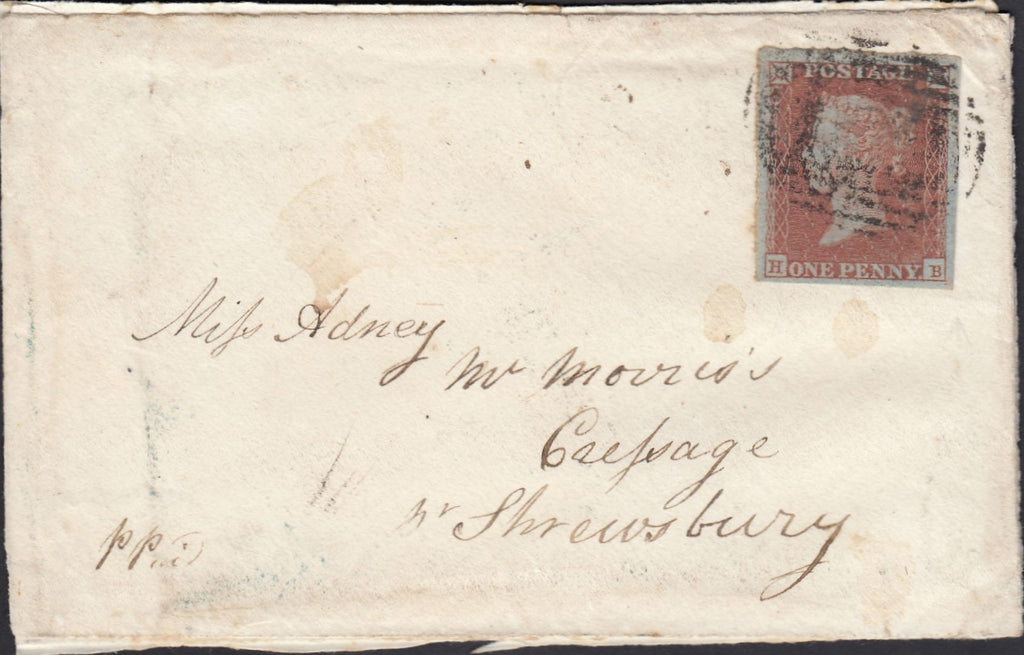 POSTAGE
H ONE PENNY B
Miſs Adney
Mr Morris's
Creſsage
nr Shrewsbury
P Paid